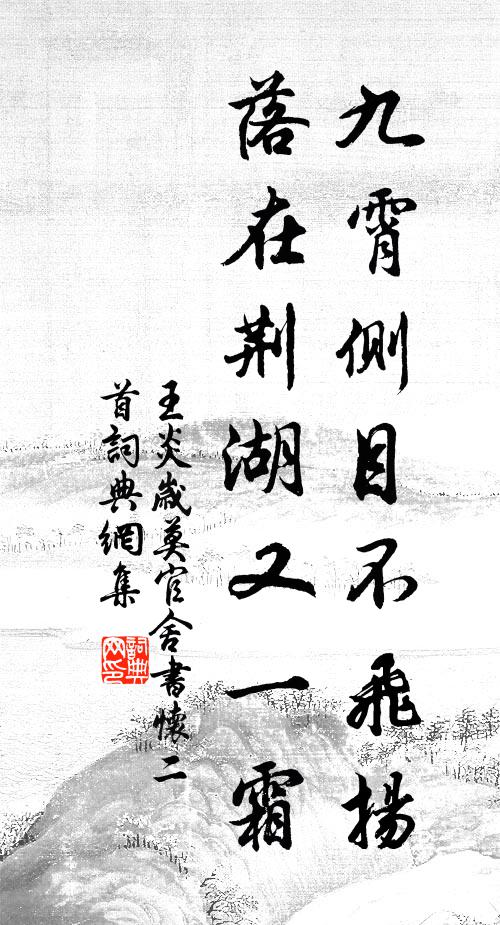 九霄側目不飛揚
落在荆湖又一霜
王炎歲莫官舍書懷二
首詞典網集
詞典
网印